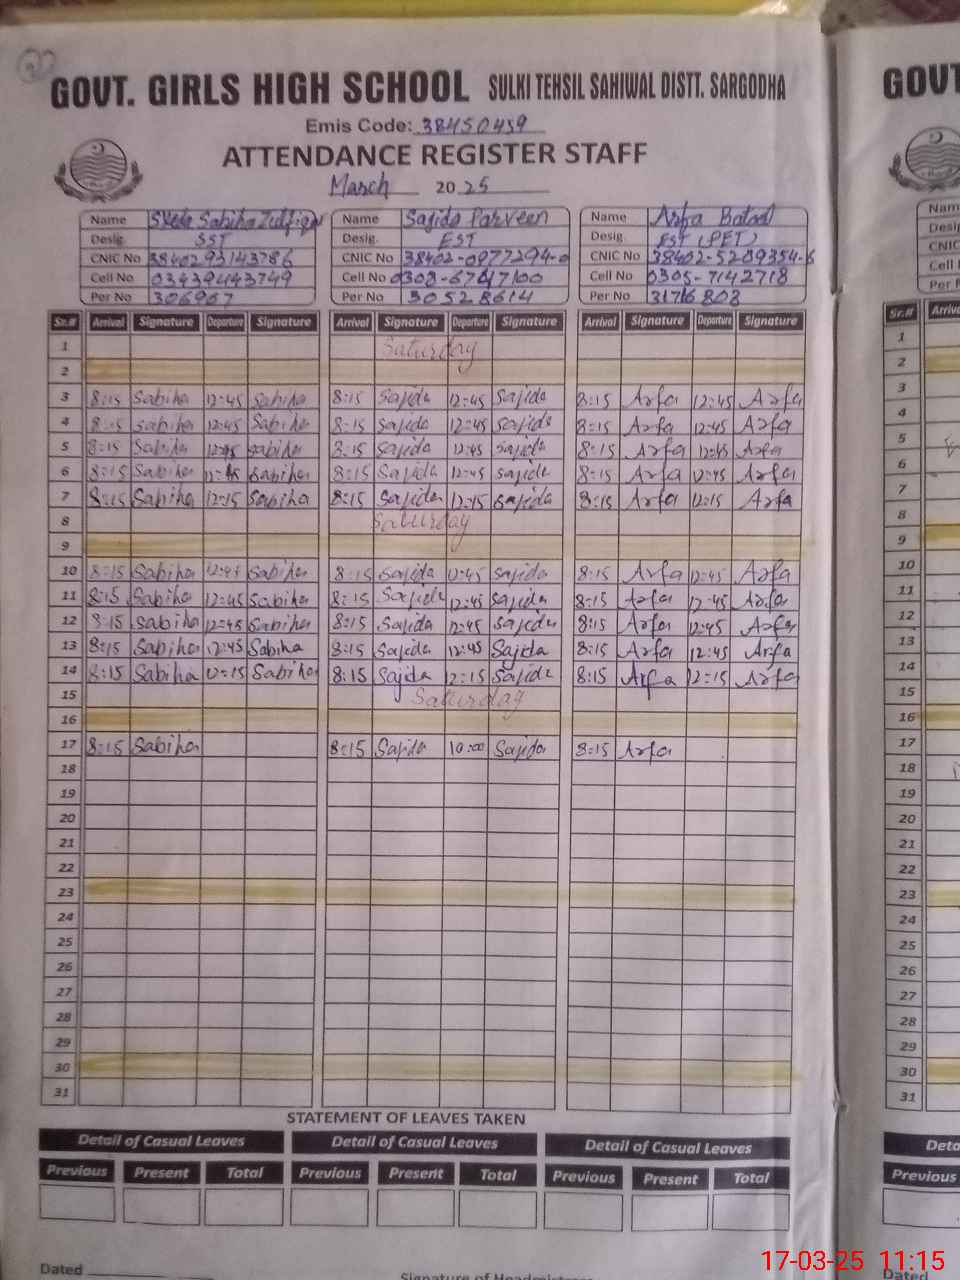 GOVT. GIRLS HIGH SCHOOL SULKI TEHSIL SAHIWAL DISTT. SARGODHA
Emis Code: 38450459
ATTENDANCE REGISTER STAFF
March 2025
Name Sabiha Name Sajida Parveen Name Arfa Batool
Desig. SST Desig. EST Desig. EST (PET)
CNIC No 3840293143786 CNIC No 38402-0977294-0 CNIC No 38402-5209354-6
Cell No 03439443749 Cell No Cell No 0305-7142718
Per No 306967 Per No 30528614 Per No 31716803
Sr.# Arrival Signature Departure Signature Arrival Signature Departure Signature Arrival Signature Departure Signature
1 Saturday
2
3 8:15 Sabiha 12:45 Sabiha 8:15 Sajida 12:45 Sajida 8:15 Arfa 12:45 Arfa
4 8:15 Sabiha 12:45 Sabiha 8:15 Sajida 12:45 Sajida 8:15 Arfa 12:45 Arfa
5 8:15 Sabiha 12:45 Sabiha 8:15 Sajida 12:45 Sajida 8:15 Arfa 12:45 Arfa
6 8:15 Sabiha 12:45 Sabiha 8:15 Sajida 12:45 Sajida 8:15 Arfa 12:45 Arfa
7 8:15 Sabiha 12:15 Sabiha 8:15 Sajida 12:15 Sajida 8:15 Arfa 12:15 Arfa
8 Saturday
9
10 8:15 Sabiha 12:45 Sabiha 8:15 Sajida 12:45 Sajida 8:15 Arfa 12:45 Arfa
11 8:15 Sabiha 12:45 Sabiha 8:15 Sajida 12:45 Sajida 8:15 Arfa 12:45 Arfa
12 8:15 Sabiha 12:45 Sabiha 8:15 Sajida 12:45 Sajida 8:15 Arfa 12:45 Arfa
13 8:15 Sabiha 12:45 Sabiha 8:15 Sajida 12:45 Sajida 8:15 Arfa 12:45 Arfa
14 8:15 Sabiha 12:15 Sabiha 8:15 Sajida 12:15 Sajida 8:15 Arfa 12:15 Arfa
15 Saturday
16
17 8:15 Sabiha 8:15 Sajida 10:00 Sajida 8:15 Arfa
18
19
20
21
22
23
24
25
26
27
28
29
30
31
STATEMENT OF LEAVES TAKEN
Detail of Casual Leaves Detail of Casual Leaves Detail of Casual Leaves
Previous Present Total Previous Present Total Previous Present Total
Dated
GOVT
Nam
Desig
CNIC
Cell
Per
Sr.# Arriva
1
2
3
4
5
6
7
8
9
10
11
12
13
14
15
16
17
18
19
20
21
22
23
24
25
26
27
28
29
30
31
Deta
Previous
Dated
17-03-25 11:15